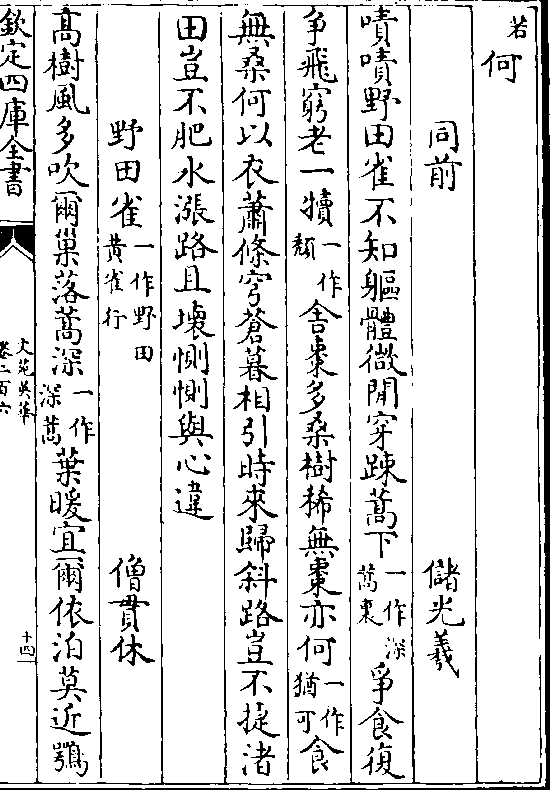 若何
同前 儲光羲
嘖嘖野田雀不知軀體微閒穿踈蒿下一作深蒿裏爭食復
爭飛窮老一犢一作頽舍棗多桑樹稀無棗亦何一作猶可食
無桑何以衣蕭條穹蒼暮相引時來歸斜路豈不捷渚
田豈不肥水漲路且壞惻惻與心違
野田雀一作野田黃雀行 僧貫休
髙樹風多吹爾巢落蒿深一作深蒿葉暖宜爾依泊莫近鶚
欽定四庫全書
文苑英華
卷二百六
十四